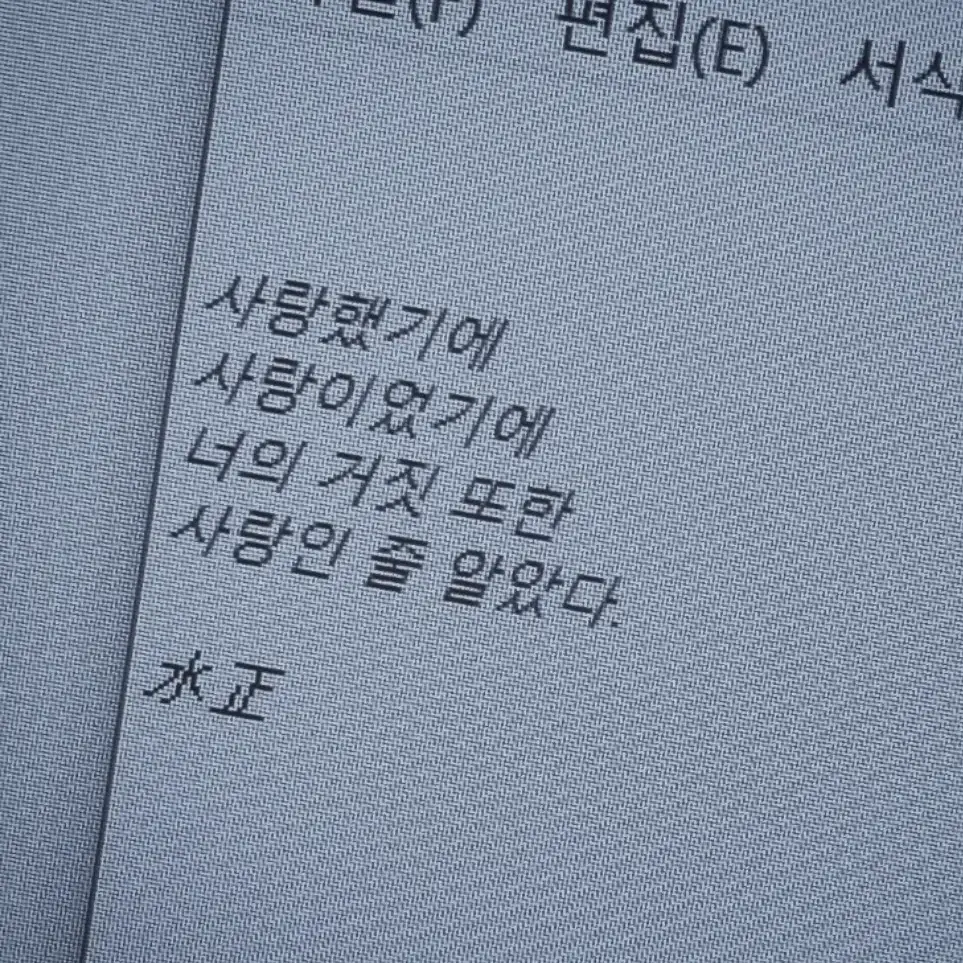 편집(E) 서식
사랑했기에
사랑이었기에
너의 거짓 또한
사랑인 줄 알았다.
水正